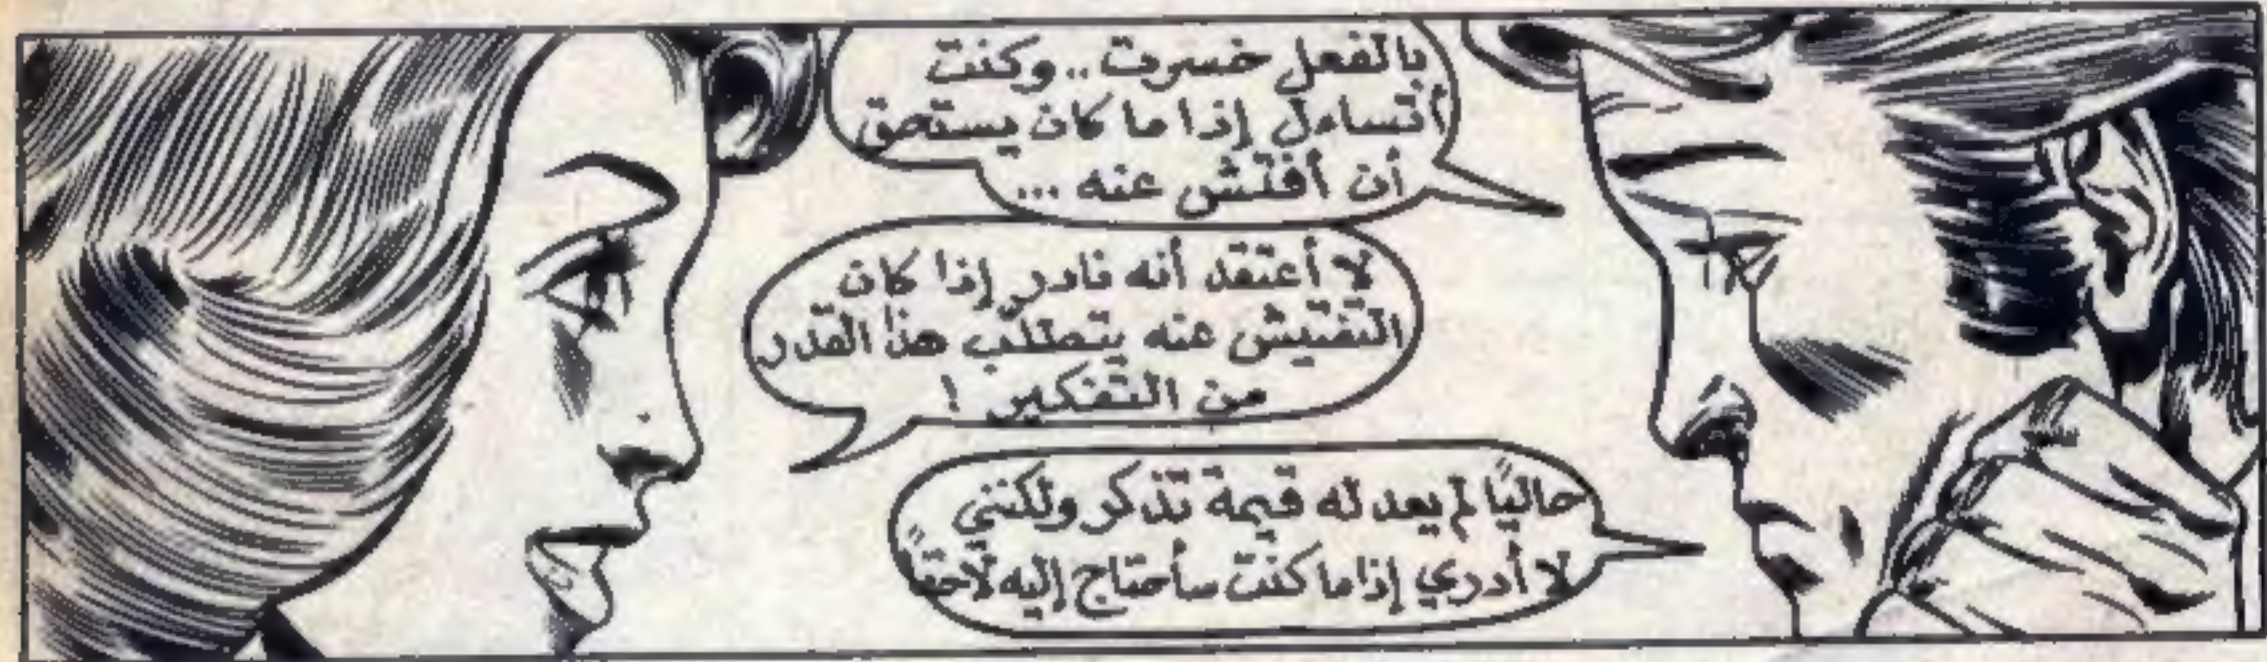 بالفعل خسرت .. وكنت
أتساءل إذا ما كان يستحق
أن أفتش عنه ...
لا أعتقد أنه نادر إذا كان
التفتيش عنه يتطلب هذا القدر
من التفكير !
حاليًا لم يعد له قيمة تذكر ولكنني
لا أدري إذا ما كنت سأحتاج إليه لاحقًا